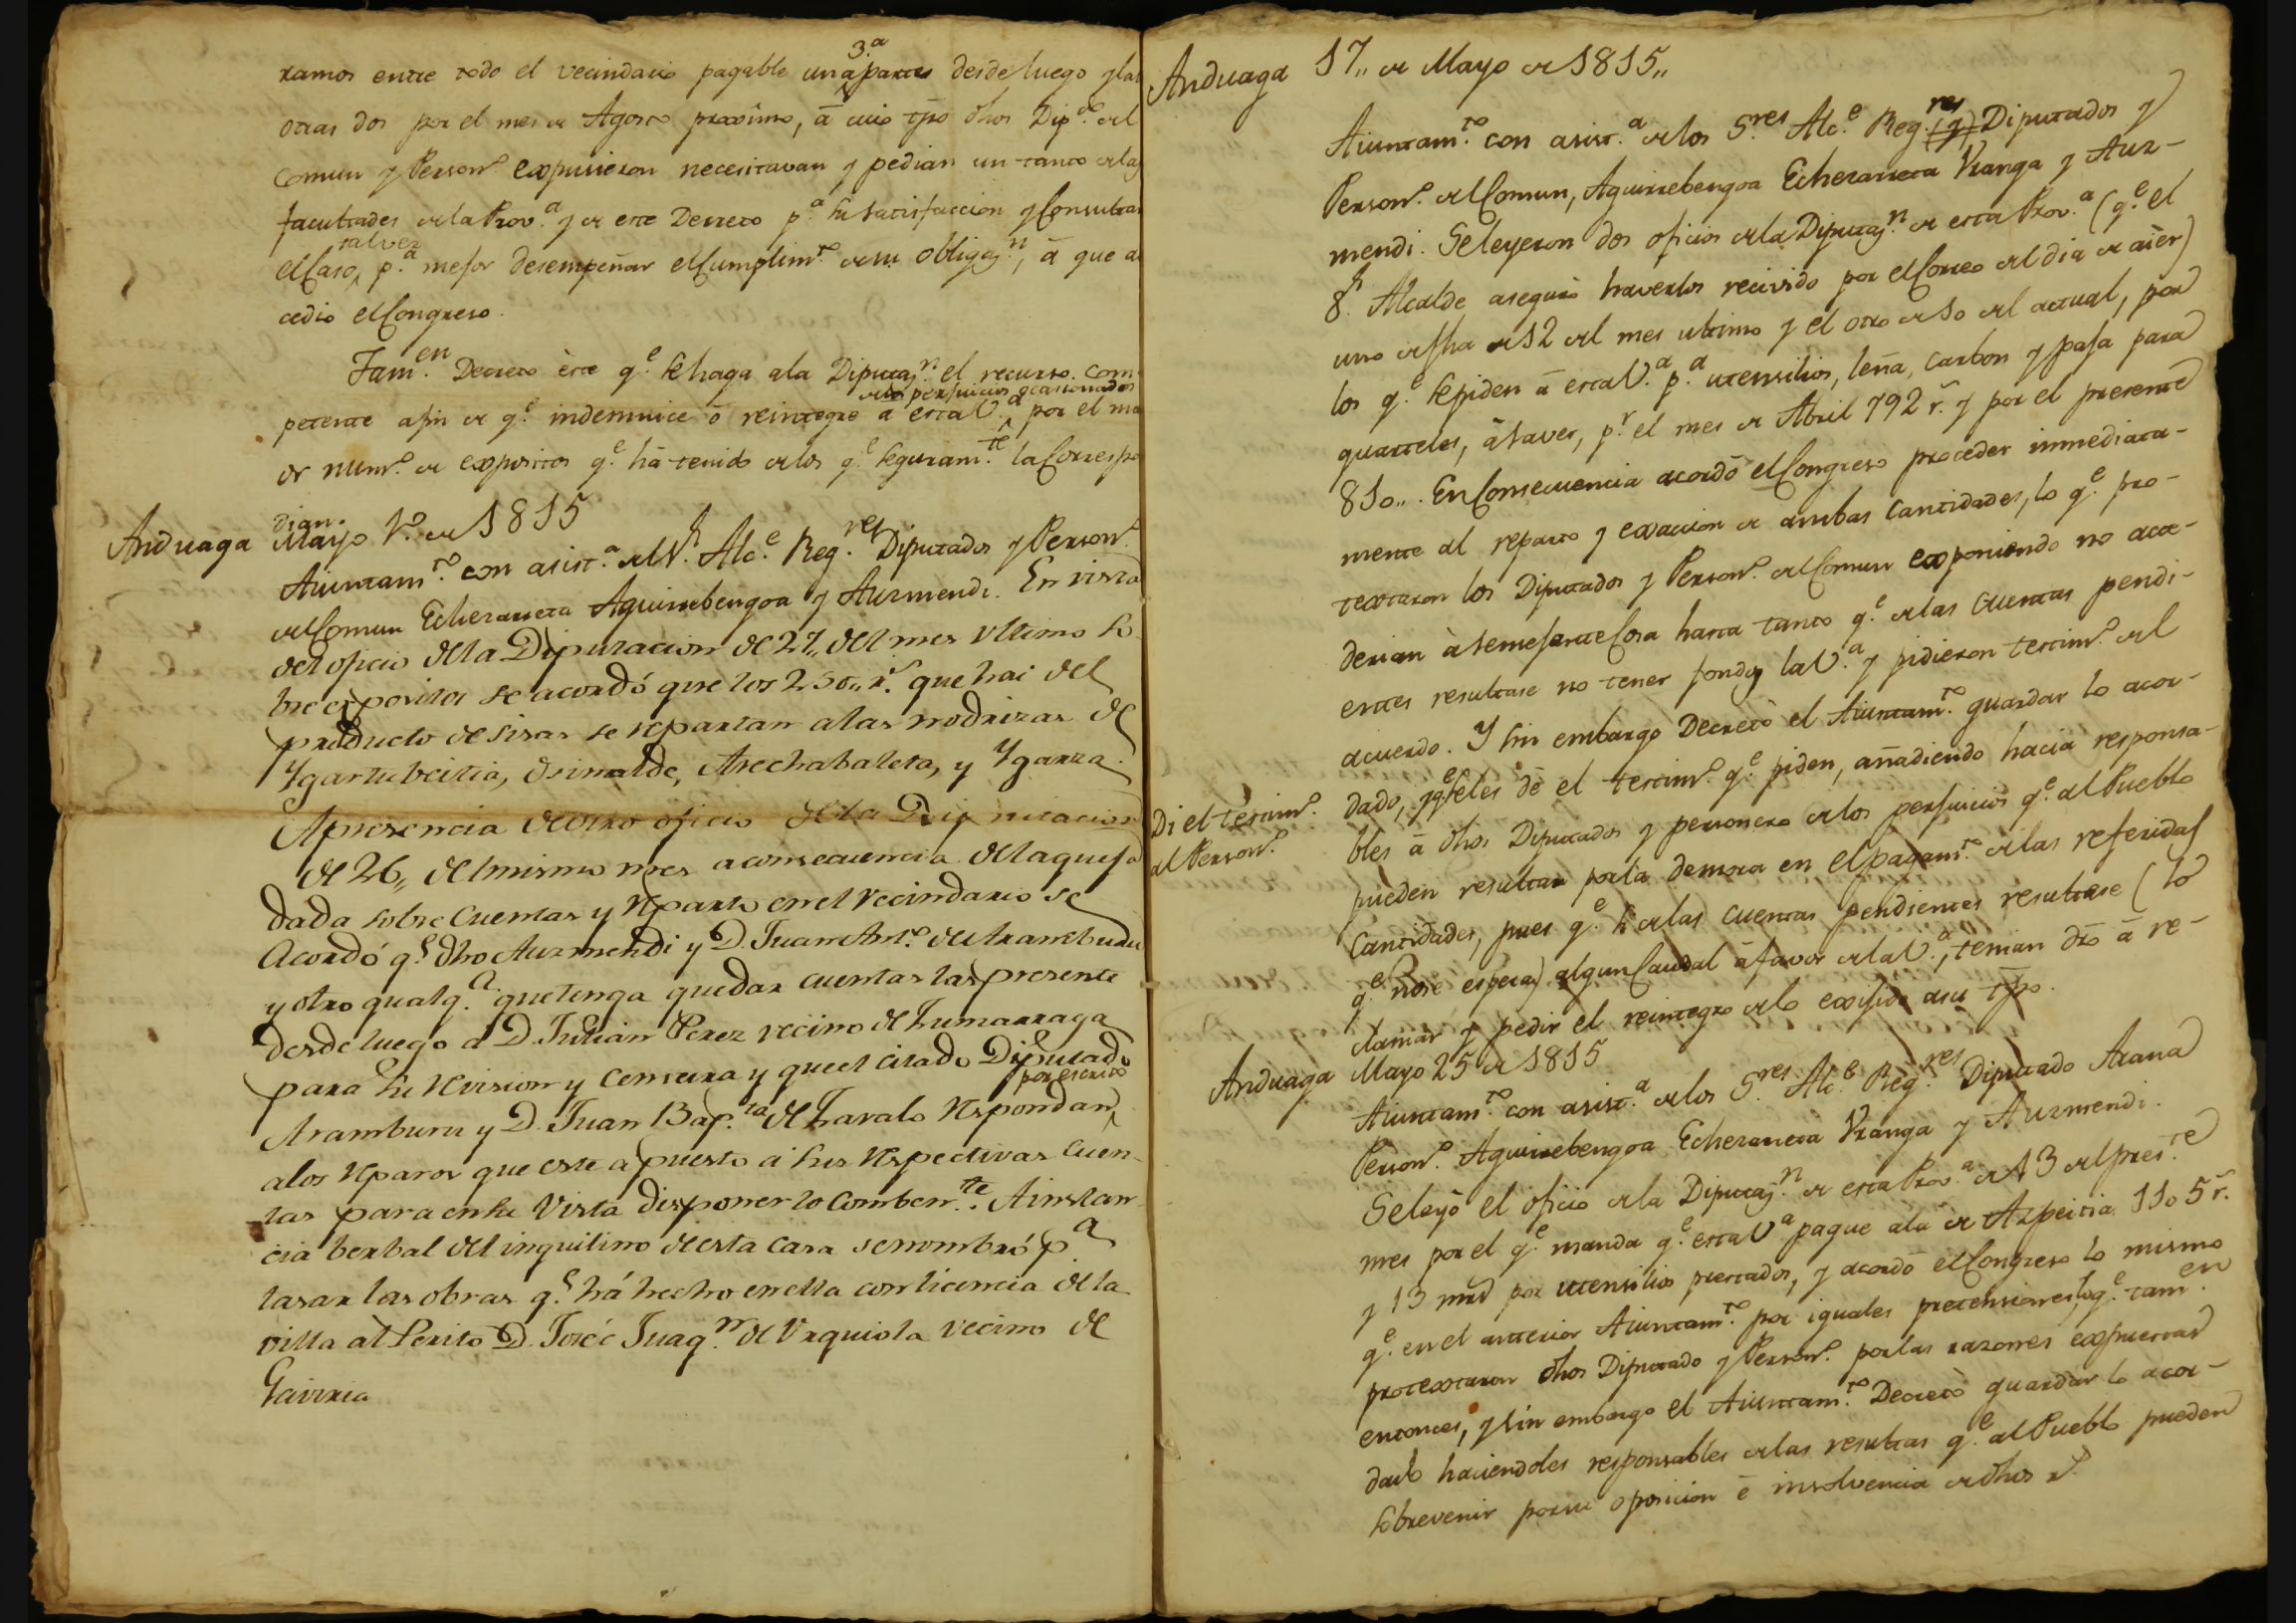 ramos entre todo el vecindario pagable una 3.ª parte desde luego y las
otras dos por el mes de Agosto proximo, â cuio tpo dhos Dip.s del
comun y Person.o expusieron necesitavan y pedian un tanto de las
facultades de la Prov.a y de este Decreto p.a su satisfaccion y Consultar
el Caso, tal vez p.a mejor desempeñar el Cumplim.to de su obligaz.n, â que ac
cedio el Congreso.
Tam.en Decreto êste q.e se haga a la Diputaz.n el recurso com
petente afin de q.e indemnice ô reintegre â esta V.a de los perjuicios ocasionados por el ma
or num.o de expositos q.e hâ tenido de los q.e seguram.te la Correspo
dian.
Anduaga Mayo 1.o de 1815
Aiuntam.to con asist.a del S.r Alc.e Reg.res Diputados y Person.o
del Comun Echezarreta Aguirrebengoa y Auzmendi. En vista
del oficio de la Diputacion de 27,, del mes ultimo so
bre expositos se acordó que los 250,, r.s que hai del
producto de sisas se repartan a las nodrizas de
Ygartubeitia, Osinalde, Arechabaleta, y Ygarza.
A presencia de otro oficio de la Diputacion
de 26,, del mismo mes a consecuencia de la queja
dada sobre Cuentas y reparto en el Vecindario se
Acordó q.e dho Auzmendi y D. Juan Ant.o de Aramburu
y otro qualq.a que tenga que dar cuentas las presente
desde luego á D. Julian Perez vecino de Zumarraga
para su revision y Censura y que el citado Diputado
Aramburu y D. Juan Bap.ta de Zavalo respondan por escrito
a los reparos que este a puesto á sus respectivas Cuen
tas para en su Vista disponer lo Comben.te. A instan
cia berbal del inquilino de esta Casa se nombró p.a
tasar las obras q.e há hecho en ella con licencia de la
villa al Perito D. José Juaq.n de Urquiola vecino de
Gaviria
Anduaga 17,, de Mayo de 1815,,
Aiuntam.to con asist.a de los S.res Alc.e Reg.res (y) Diputados y
Person.o del Comun, Aguirrebengoa Echezarreta Uranga y Auz-
mendi. Se leyeron dos oficios de la Diputaz.n de esta Prov.a (q.e el
S.r Alcalde aseguró haverlos recivido por el Correo del dia de aier)
uno de fha de 12 del mes ultimo y el otro de 10 del actual, por
los q.e se piden â esta V.a p.a utensilios, leña, carbon y paja para
quarteles, â saver, p.r el mes de Abril 792 r.s y por el presente
810,,. En Consecuencia acordô el Congreso proceder inmediata-
mente al reparto y exaccion de ambas Cantidades, lo q.e pro-
textaron los Diputados y Person.o del Comun exponiendo no acce-
derian â semejante Cosa hasta tanto q.e de las Cuentas pendi-
entes resultase no tener fondos la V.a y pidieron testim.o del
acuerdo. Y sin embargo Decretô el Aiuntam.to guardar lo acor-
Di el testim.o
al Person.o
dado, y q.e se les dê el testim.o q.e piden, añadiendo hacia responsa-
bles â dhos Diputados y personero de los perjuicios q.e al Pueblo
pueden resultar por la demora en el pagam.to de las referidas
Cantidades, pues q.e si de las Cuentas pendientes resultase (lo
q.e no se espera) algun Caudal â favor de la V.a, tenian dro â re-
clamar y pedir el reintegro de lo exijido a su tpo.
Anduaga Mayo 25 de 1815
Aiuntam.to con asist.a de los S.res Alc.e Reg.res Diputado Arana
Person.o Aguirrebengoa Echezarreta Uranga y Auzmendi.
Se leyô el oficio de la Diputaz.n de esta Prov.a de 13 del pres.te
mes por el q.e manda q.e esta V.a pague a la de Azpeitia 1105 r.s
y 13 mrs por utensilios prestados, y acordô el Congreso lo mismo
q.e en el anterior Aiuntam.to por iguales pretensiones, lo q.e tam.en
protextaron dhos Diputado y Person.o por las razones expuestas
entonces, y sin embargo el Aiuntam.to Decretô guardar lo acor-
dado haciendoles responsables de las resultas q.e al Pueblo pueden
sobrevenir por su oposicion ê insolvencia de dhos r.s